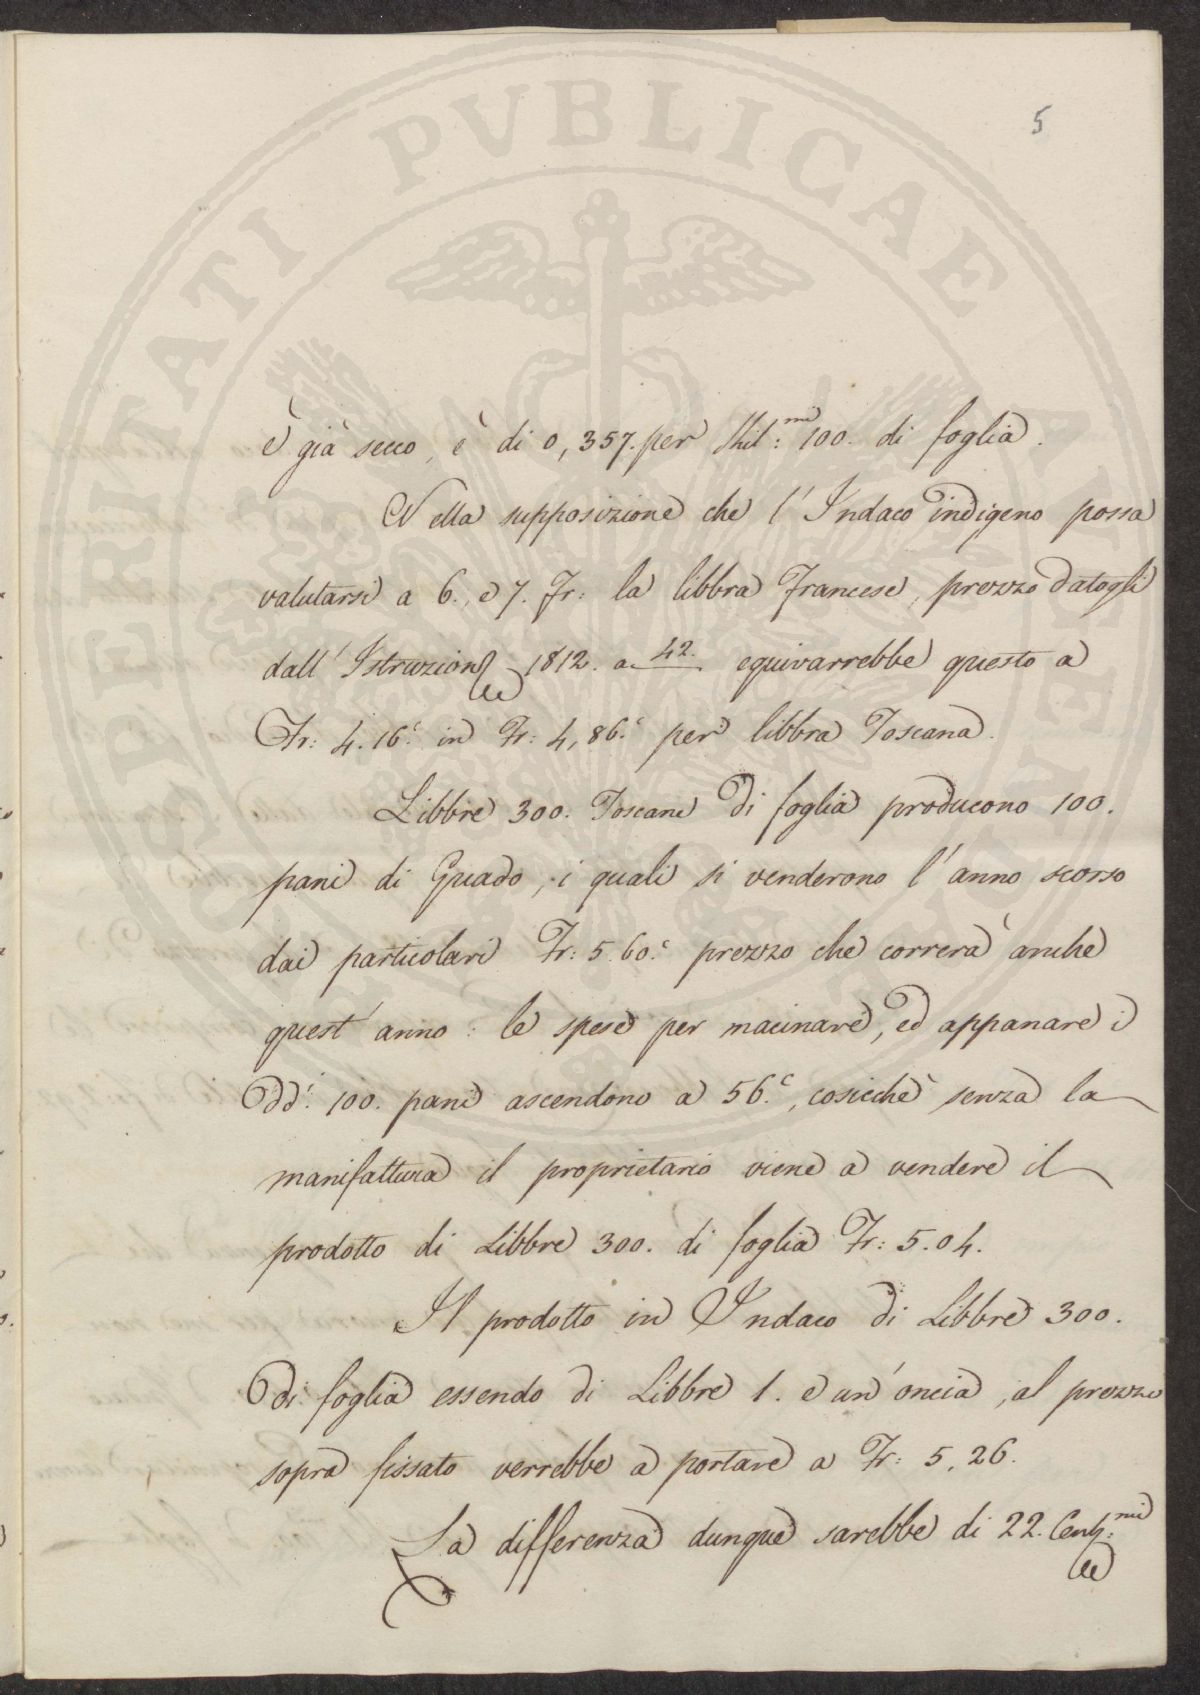 5
è già secco, è di 0,357. per Kil:mi 100. di foglia.
Nella supposizione che l'Indaco indigeno possa
valutarsi a 6., e 7. Fr: la libbra Francese, prezzo datogli
dall'Istruzione 1812. a 42. equivarrebbe questo a
Fr: 4.16.c in Fr: 4,86.c per libbra Toscana.
Libbre 300. Toscane di foglia producono 100.
pani di Guado, i quali si venderono l'anno scorso
dai particolari Fr: 5.60.c prezzo che correrà anche
quest'anno: le spese per macinare, ed appanare i
dd.i 100. pani ascendono a 56.c, cosicchè senza la
manifattura il proprietario viene a vendere il
prodotto di Libbre 300. di foglia Fr: 5.04.
Il prodotto in Indaco di Libbre 300.
di foglia essendo di Libbre 1. e un'oncia, al prezzo
sopra fissato verrebbe a portare a Fr: 5,26.
La differenza dunque sarebbe di 22. Cent:mi
PROSPERITATI PVBLICAE AVGENDAE